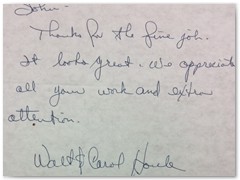 John -
Thanks for the fine job.
It looks great. We appreciate
all your work and extra
attention.
Walt & Carol Houck